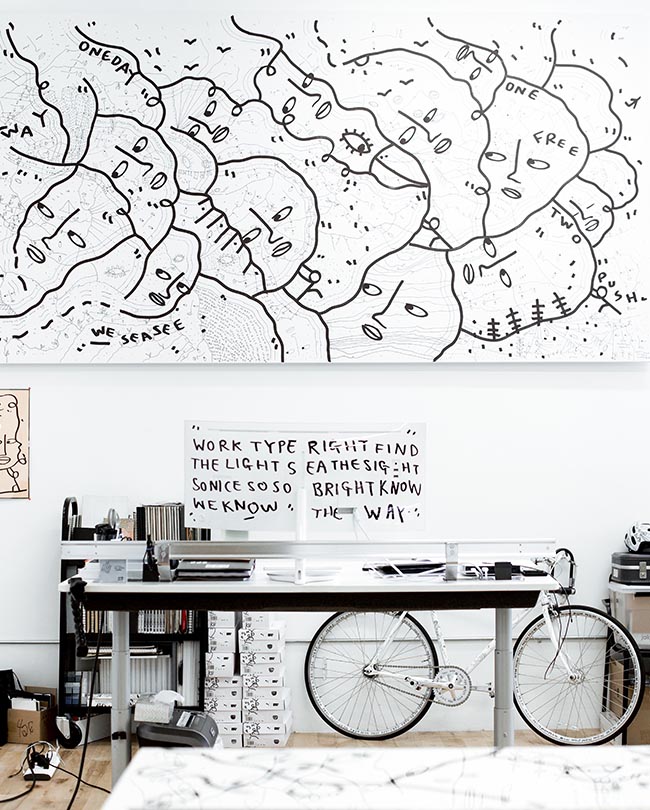 ONEDAY
WAY
ONE
FREE
TWO
PUSH
WE SEA SEE
" WORK TYPE RIGHT FIND
THE LIGHT SEA THE SIGHT
SO NICE SO SO BRIGHT KNOW
WE KNOW " THE WAY "